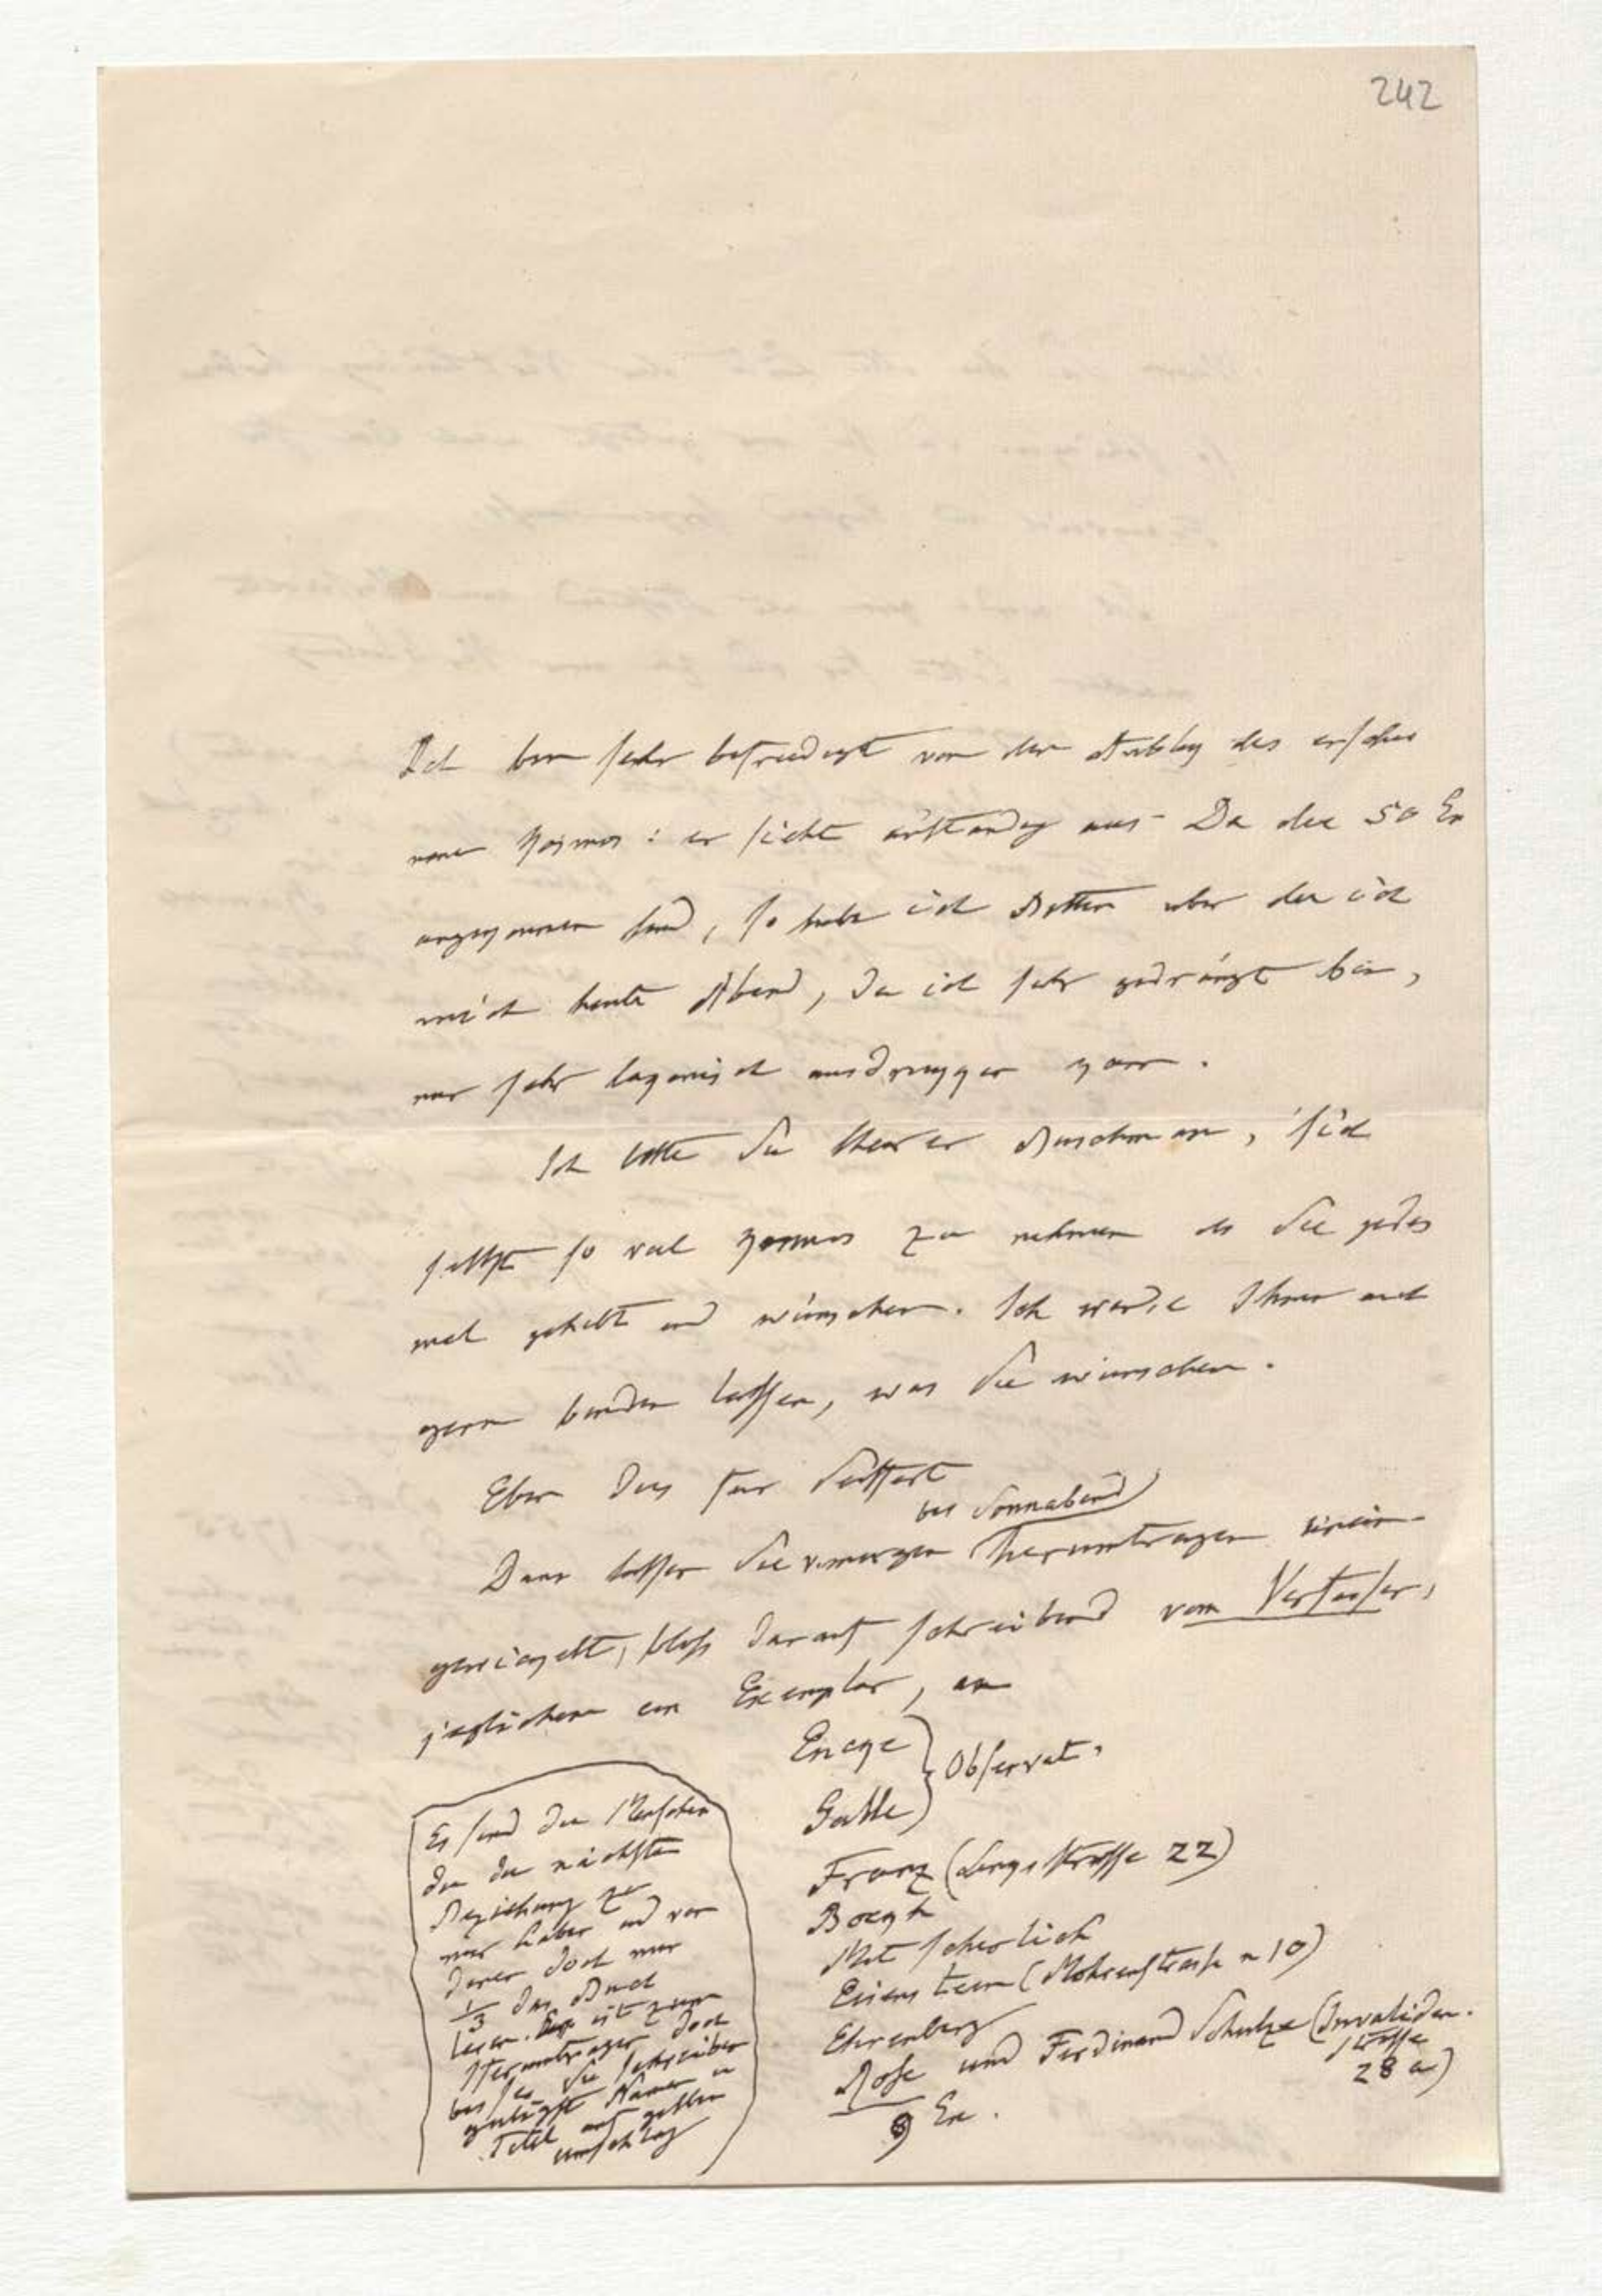 242
Ich bin sehr befriedigt von dem Anblick des erschie
nenen Kosmos: er sieht anständig aus. Da die 50 Ex
angekommen sind, so habe ich Bitten über die ich
mich heute Abend, da ich sehr gedrängt bin,
nur sehr lakonisch ausdrükken kann.
Ich bitte Sie theurer Buschmann, sich
selbst so viel Kosmos zu nehmen als Sie jedes
mal gehabt und wünschen. Ich werde Ihnen auch
gern binden lassen, was Sie wünschen.
Eben dies für Seiffert
bis Sonnabend
Dann lassen Sie v. morgen herumtragen einein-
gewikkelt, bloss darauf schreibend vom Verfasser,
jeglichem ein Exemplar, an
Encke
Galle
Observat.
Franz (Lingsstrasse 22)
Boekh
Mitscherlich
Eisenstein (Mohrenstrasse n 10)
Ehrenberg
Rose und Ferdinand Schulze (Invaliden-
strasse
28 a)
9 Ex.
Es sind die Menschen
die die nächste
Beziehung zu
mir haben und von
denen doch nur
1/3 das Buch
lesen. ist zum
Herumtragen doch
besser Sie schreiben
gütigst Namen u
Titel auf gelben
Umschlag